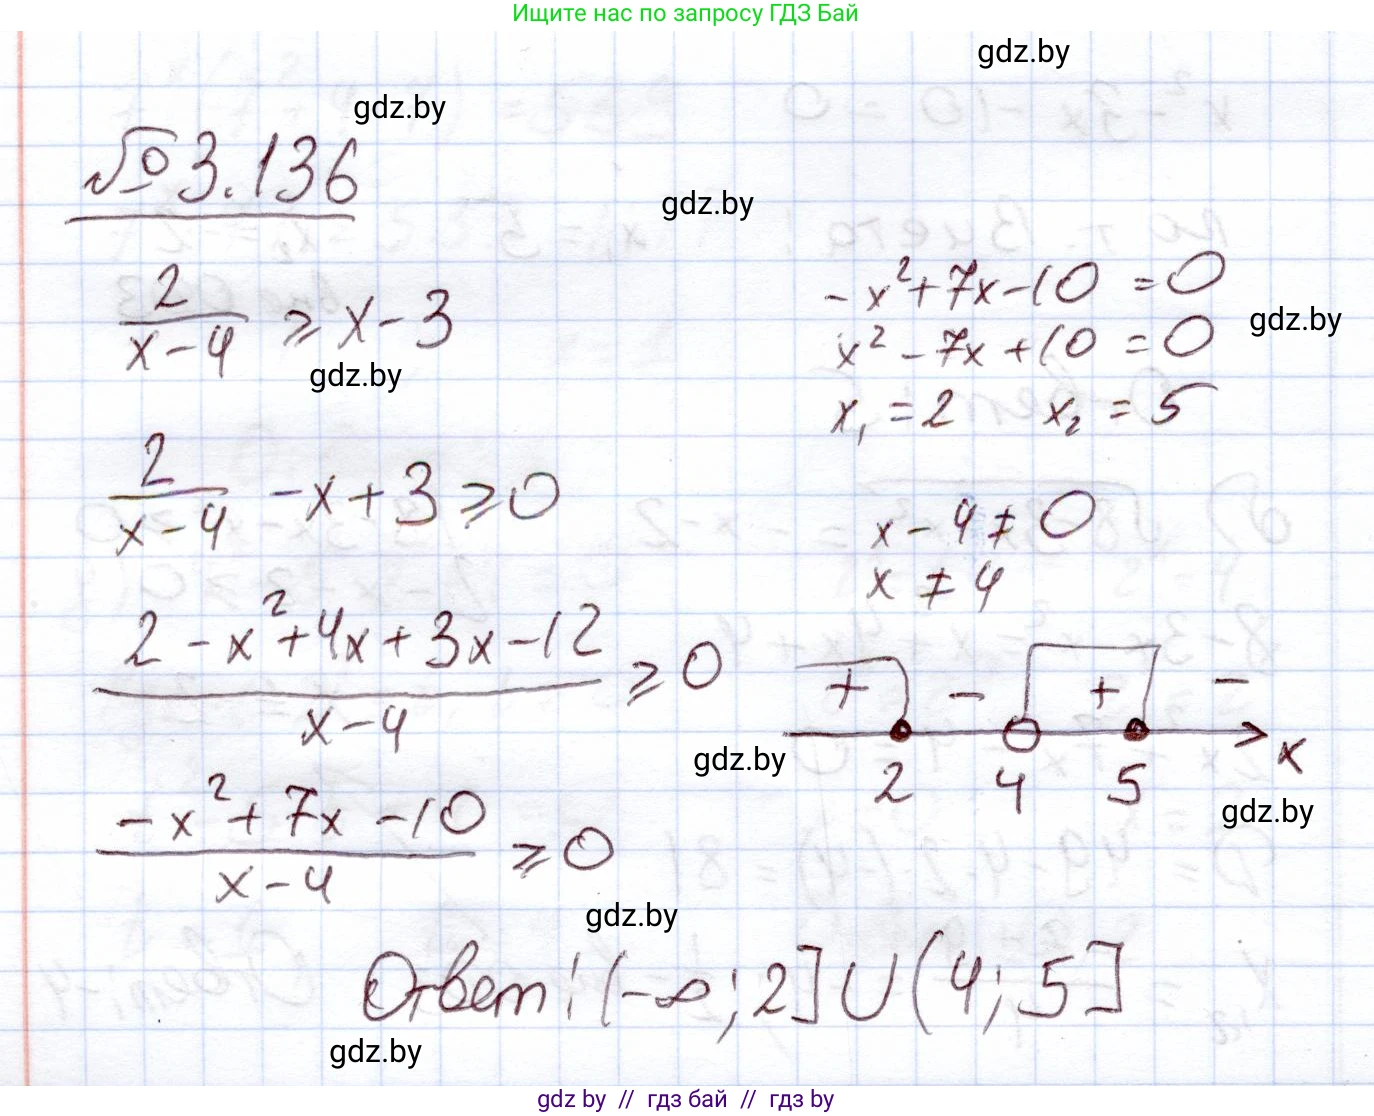 Ищите нас по запросу ГДЗ Бай
gdz.by
gdz.by
№ 3.136
gdz.by
2/(x-4) ≥ x-3
gdz.by
2/(x-4) -x+3 ≥ 0
(2-x²+4x+3x-12)/(x-4) ≥ 0
(-x²+7x-10)/(x-4) ≥ 0
-x²+7x-10 = 0
gdz.by
x²-7x+10 = 0
x₁ = 2 x₂ = 5
x-4 ≠ 0
x ≠ 4
+ - + -
2 4 5 x
gdz.by
gdz.by
gdz.by
Ответ: (-∞; 2] ∪ (4; 5]
gdz.by
gdz by // гдз бай // гдз by